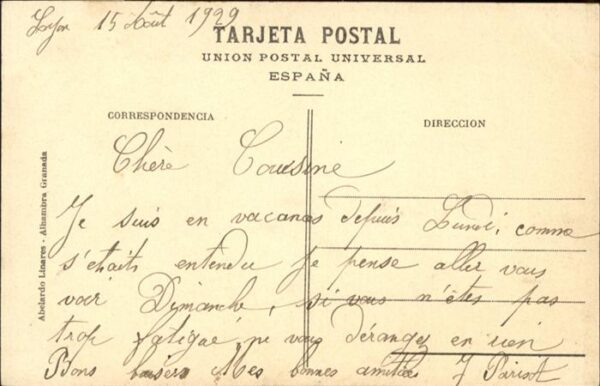 Lyon 15 Août 1929
TARJETA POSTAL
UNION POSTAL UNIVERSAL
ESPAÑA
CORRESPONDENCIA
DIRECCION
Abelardo Linares - Alhambra Granada
Chère Cousine
Je suis en vacances depuis Lundi, comme
s'etaits entendu je pense aller vous
voir Dimanche, si vous n'êtes pas
trop fatigué, ne vous dérangez en rien
Bons baisers Mes bonnes amitiées J Parisot